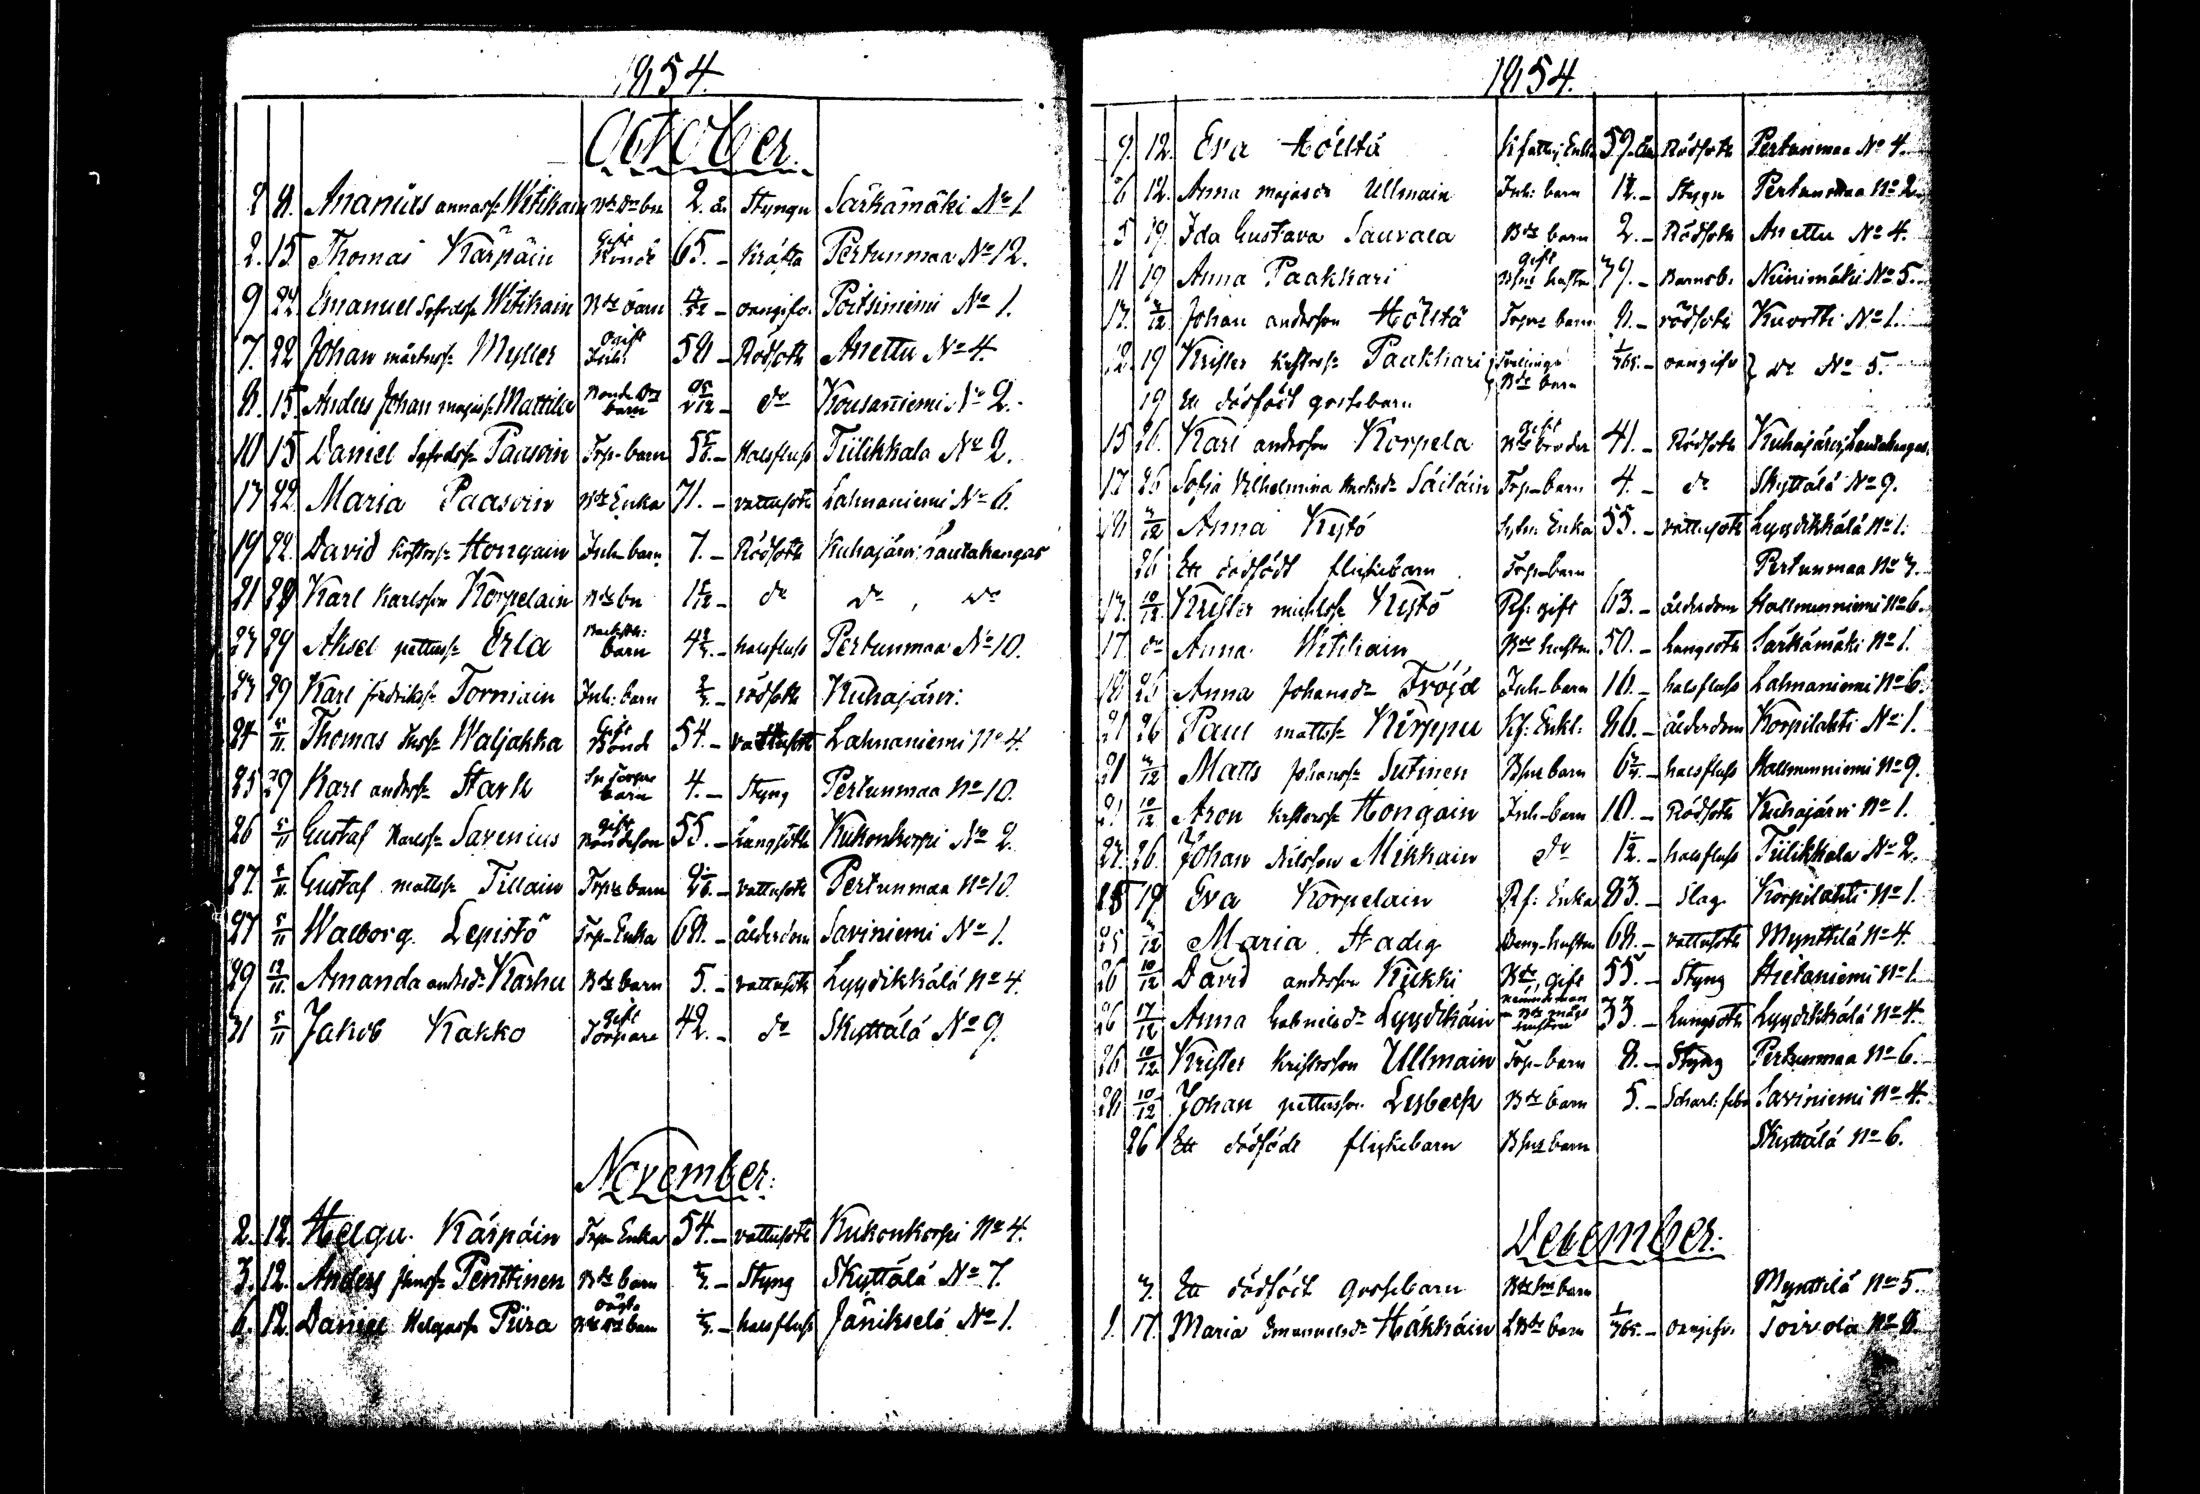 1854.
October.
8. Ananias annass. Witikain Bde dr bn 2. år Styngn Särkämäki No 1
2. 15. Thomas Kärpäin gift Bonde 65. - Kräfta Pertunmaa No 12.
9 22 Emanuel Witikain Bde barn oangifv. Poitsiniemi No 1.
7. 22 Johan mårtenss. Myller gift Inh: 58 - Rödsoth Anettu No 4.
8. 15. Anders Johan majass. Mattila Bonde barn do Kousaniemi No 2.
10 15 Daniel Paasoin Trp. barn Halsfluss Tiilikkala No 2.
17 22 Maria Paasoin Bde Enka 71. - vattusoth Lahnaniemi No 6.
19 22. David Hongain Inh. barn 7. - Rödsoth Kuhajärvi: Rautakangas
21 29 Karl Karlsson Korpelain Bde bn do do, do
27 29 Aksel petterss. Erla barn halsfluss Pertunmaa No 10.
27 29 Karl fredrikss. Torniain Inh: barn rödsoth Kuhajärvi:
24 5/11 Thomas Waljakka gift Bonde 54. - vattusoth Lahnaniemi No 4.
25 29 Karl anderss. Stark barn 4. - Styng Pertunmaa No 10.
26 5/11 Gustaf Karlss. Savenius gift Bondeson 55. - Lungsoth Kukonkorpi No 2.
27. 5/11 Gustaf mattss. Tillain Trpre barn vattusoth Pertunmaa No 10.
27 5/11 Walborg Lepistö Trp. Enka 68. - ålderdom Saviniemi No 1.
29 12/11 Amanda andersdr Karhu Bde barn 5. - vattusoth Lyydikkälä No 4.
31 5/11 Jakob Kakko gift Torpare 42. - do Skyttälä No 9.
November.
2. 12. Helga Kärpäin Trp. Enka 54. - vattusoth Kukonkorpi No 4.
3. 12. Anders Penttinen Bde barn - Styng Skyttälä No 7.
6. 12. Daniel Helgass. Piira barn - halsfluss Jänikselä No 1.
1854.
9. 12. Eva Hölttä Enka 59. år Rödsoth Pertunmaa No 4.
6 12. Anna majasdr Ullmain Inh: barn - Stygn Pertunmaa No 2.
5 19. Ida Gustava Sauvala Bde barn 2. - Rödsoth Anettu No 4.
11 19 Anna Paakkari gift Bhns hustru 39. - Barnsb. Neinimäki No 5.
13. 3/12 Johan andersson Hölttä Trpre barn 8. - rödsoth Kuortti No 1.
12. 19 Krister Paakkari Tvillingar Bde barn 1/365. - oangifv } do No 5.
19 Ett dödfödt gossebarn
15 26. Karl andersson Korpela gift Bde broder 41. - Rödsoth Kuhajärvi, Rautakangas.
17 26 Sofia Vilhelmina Säiläin Trp. barn 4. - do Skyttälä No 9.
18 3/12 Anna Kystö Enka 55. - vattusoth Lyydikkälä No 1.
26 Ett dödfödt flickebarn Trp. barn Pertunmaa No 7.
13. 10/12 Krister michelss. Kystö Rf: gift 63. - ålderdom Hallmenniemi No 6.
17. do Anna Witikain Bde hustru 50. - Lungsoth Särkämäki No 1.
18 26 Anna Johansdr Fröjd Inh. barn 16. - halsfluss Lahnaniemi No 6.
21 26 Paul mattss. Kirppu Enkl: 86. - ålderdom Korpilahti No 1.
21 3/12 Matts Johanss. Sutinen Bhns barn halsfluss Hallmenniemi No 9.
21 10/12 Aron Hongain Inh. barn 10. - Rödsoth Kuhajärvi No 1.
23. 26. Johan Nilsson Mikkain do halsfluss Tiilikkala No 2.
15 19 Eva Korpelain Rf: Enka 83. - Slag Korpilahti No 1.
25 3/12 Maria Stadig hustru 68. - vattusoth Mynttilä No 4.
26 10/12 David andersson Kukki Bde, gift nämndeman 55. - Styng Hietaniemi No 1.
26 17/12 Anna Gabrielsdr Lyydikäin Bde mågs hustru 33. - Lungsoth Lyydikkälä No 4.
26 10/12 Krister Kristersson Ullmain Trp. barn 8. - Styng Pertunmaa No 6.
28 10/12 Johan petterson Lisbeck Bde barn 5. - Scharl: feber Saviniemi No 4.
26 Ett dödfödt flickebarn Bhns barn Skyttälä No 6.
December.
3. Ett dödfödt gossebarn barn Mynttilä No 5.
1. 17. Maria Emanuelsdr Häkkäin barn 1/365. - oangifv. Toivola No 8.